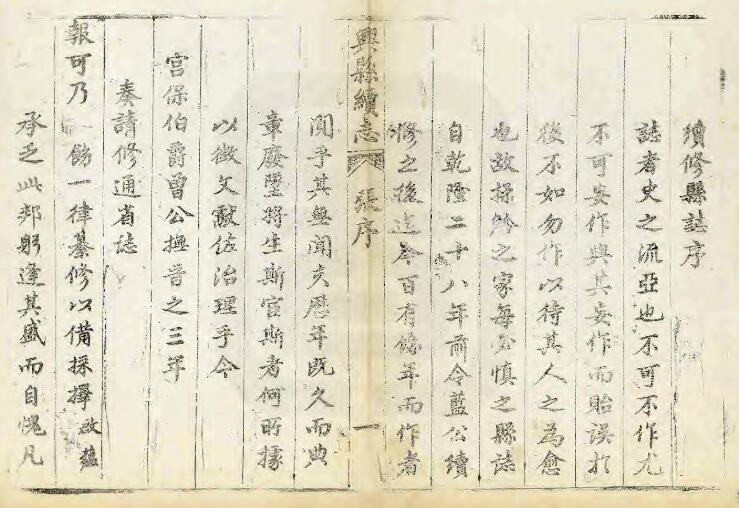 續修縣誌序
誌者史之流亞也不可不作尤
不可妄作與其妄作而貽誤於
後不如勿作以待其人之為愈
也故操觚之家每必慎之縣誌
自乾隆二十八年前令藍公續
修之後迄今百有餘年而作者
興縣續志 張序 一
聞乎其無聞夫歷年既久而典
章廢墜將生斯官斯者何所據
以徵文獻佐治理乎今
宮保伯爵曾公撫晉之三年
奏請修通省誌
報可乃飭一律纂修以備採擇啟蘊
承乏此邦躬逢其盛而自愧凡